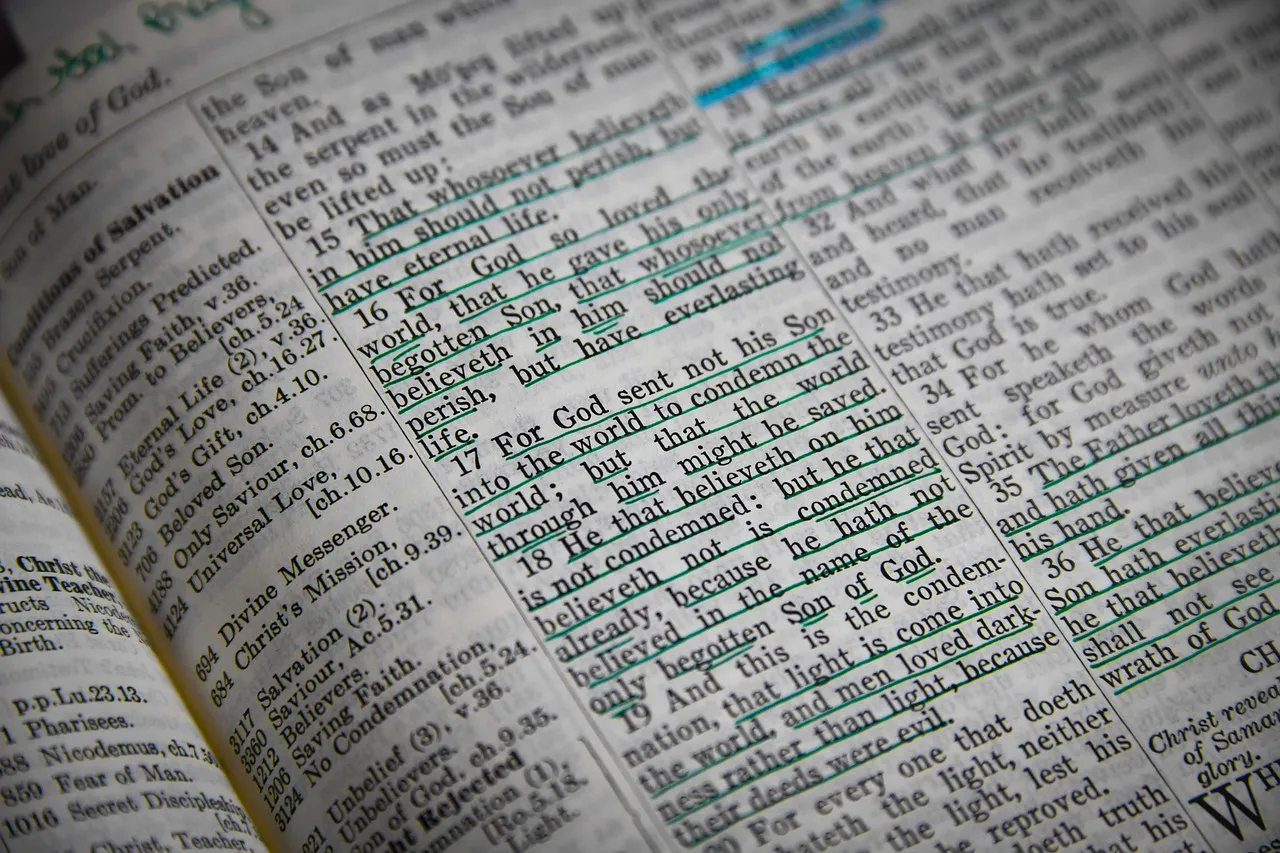 love of God.
Son of Man.
of Salvation
Brazen Serpent.
Crucifixion.
Sufferings Predicted.
Saving Faith, v.36.
Prom. to Believers,
[ch.5.24
Eternal Life (2), v.36.
God's Love, ch.16.27.
God's Gift, ch.4.10.
Beloved Son.
4188 Only Saviour, ch.6.68.
Universal Love,
[ch.10.16.
694 Divine Messenger.
684 Christ's Mission,
[ch.9.39.
317 Salvation (2),
3360 Saviour, Ac.5.31.
1212 Believers.
1206 Saving Faith.
3124 No Condemnation,
[ch.5.24.
Unbelief (3), v.36.
Unbelievers.
Son of God, ch.9.35.
Rejected
(1),
[Ro.5.18.
Light.
Christ the
Teacher,
Nicod
concerning the
Birth.
p.p.Lu.23.13.
1 Pharisees.
Nicodemus, ch.7.50
859 Fear of Man.
1016 Secret Discipleship
Christ, Teacher,
the Son of man which
heaven.
14 And as Mo'ses lifted up
the serpent in the wilderness,
even so must the Son of man
be lifted up:
15 That whosoever believeth
in him should not perish, but
have eternal life.
16 For God so loved the
world, that he gave his only
begotten Son, that whosoever
believeth in him should not
perish, but have everlasting
life.
17 For God sent not his Son
into the world to condemn the
world; but that the world
through him might be saved.
18 He that believeth on him
is not condemned: but he that
believeth not is condemned
already, because he hath not
believed in the name of the
only begotten Son of God.
19 And this is the condem-
nation, that light is come into
the world, and men loved dark-
ness rather than light, because
their deeds were evil.
20 For every one that doeth
hateth the light, neither
the light, lest his
reproved.
doeth truth
that his
30
31 He that cometh from
is above all: he that is of
earth is earthly, and speaketh
of the earth: he that cometh
from heaven is above all.
32 And what he hath seen
and heard, that he testifieth;
and no man receiveth his
testimony.
33 He that hath received his
testimony hath set to his seal
that God is true.
34 For he whom God hath
sent speaketh the words
God: for God giveth not
Spirit by measure unto
35 The Father loveth
and hath given all
his hand.
36 He that
Son hath
he that believeth
shall not see
wrath of God
CH
Christ
of
glory.